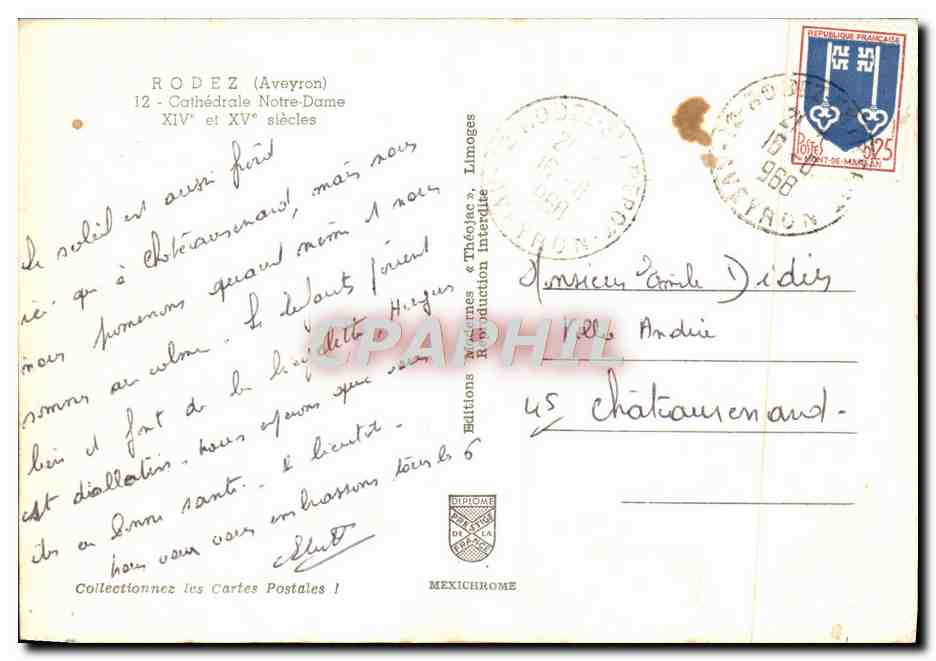 RODEZ (Aveyron)
12 - Cathédrale Notre-Dame
XIVe et XVe siècles
Le soleil est aussi froid
ici qu'à Châteaurenard, mais nous
nous promenons quand même et nous
sommes au calme. Les enfants jouent
bien et font de la bicyclette, Hugues
est
nous espérons que vous
êtes en bonne santé. à bientôt.
nous vous embrassons tous les 6
Collectionnez les Cartes Postales !
Editions Modernes « Théojac », Limoges
Reproduction interdite
DIPLOME
PRESTIGE
DE LA
FRANCE
MEXICHROME
REPUBLIQUE FRANÇAISE
POSTES
0,25
MONT-DE-MARSAN
AVEYRON
16
1968
AVEYRON
16
968
Monsieur Emile Didier
Villa André
45 Châteaurenard.
CPAPHIL